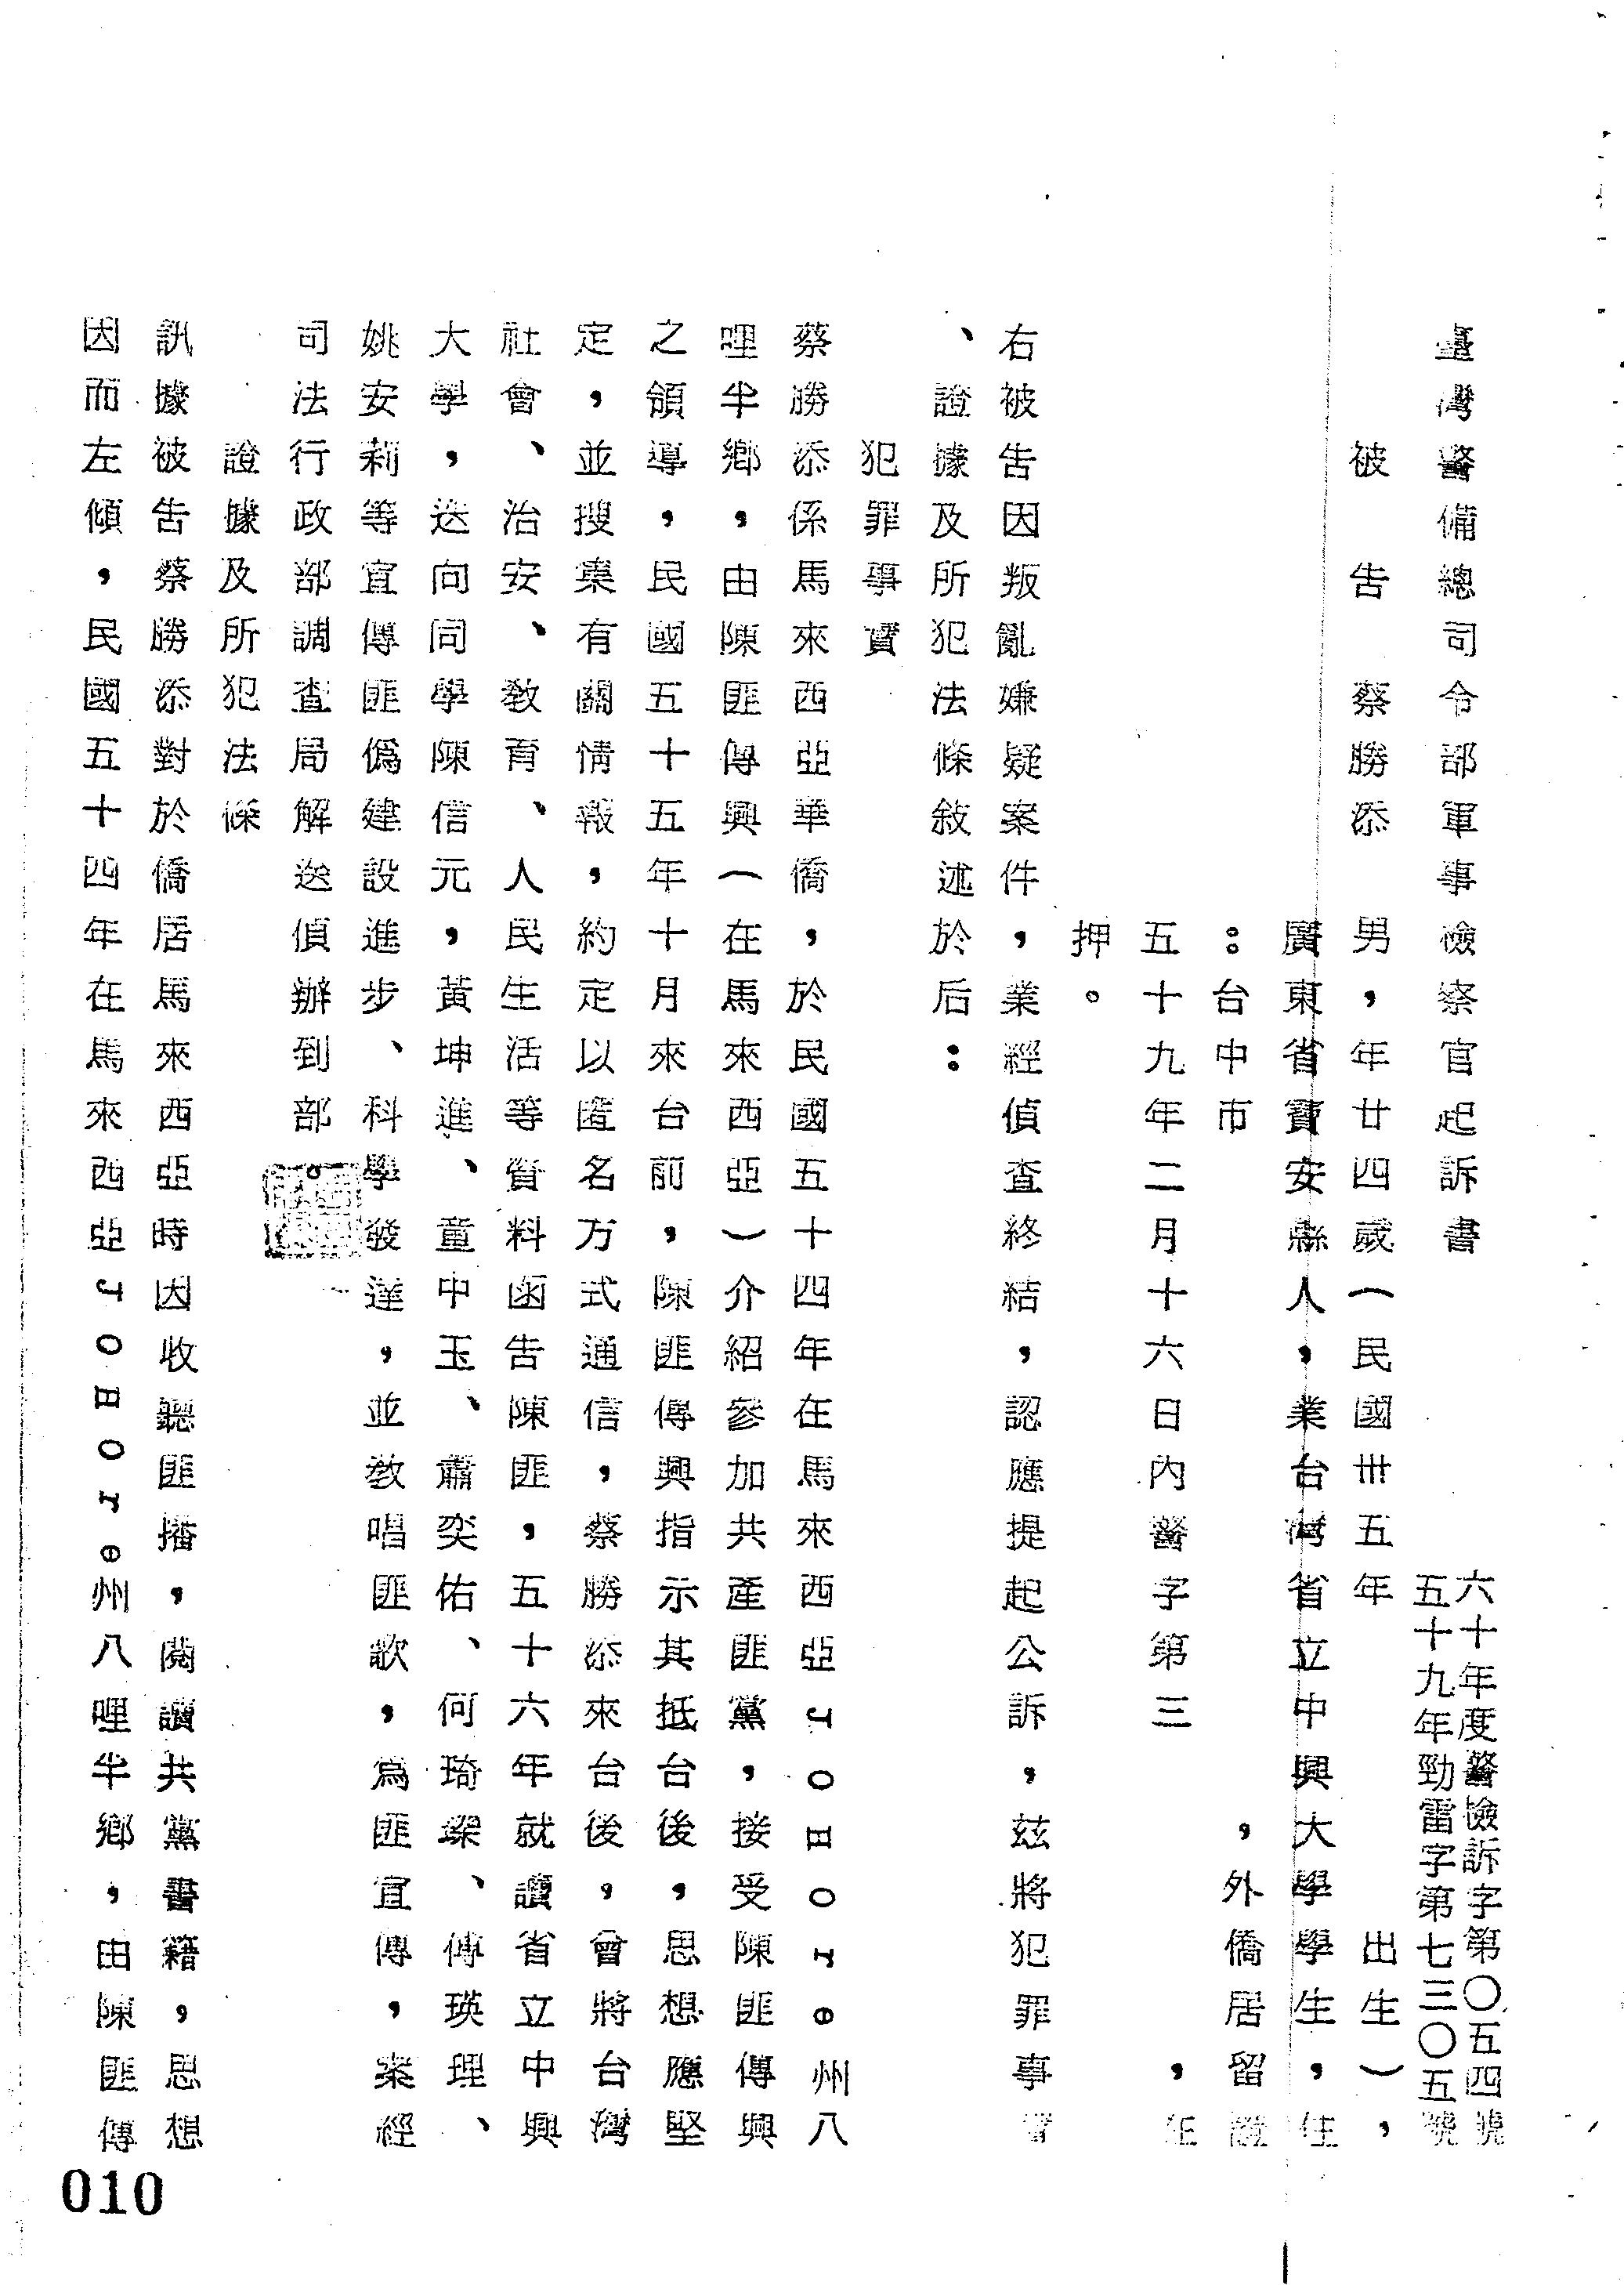 臺灣警備總司令部軍事檢察官起訴書
六十年度警檢訴字第〇五四號
五十九年勁雷字第七三〇五號
被告 蔡勝添 男,年廿四歲(民國卅五年 出生),
廣東省寶安縣人,業台灣省立中興大學學生,住
:台中市 ,外僑居留證
五十九年二月十六日內警字第三 ,在
押。
右被告因叛亂嫌疑案件,業經偵查終結,認應提起公訴,玆將犯罪事實
、證據及所犯法條敘述於后:
犯罪事實
蔡勝添係馬來西亞華僑,於民國五十四年在馬來西亞JOHOre州八
哩半鄉,由陳匪傳興(在馬來西亞)介紹參加共產匪黨,接受陳匪傳興
之領導,民國五十五年十月來台前,陳匪傳興指示其抵台後,思想應堅
定,並搜集有關情報,約定以匿名方式通信,蔡勝添來台後,曾將台灣
社會、治安、教育、人民生活等資料函告陳匪,五十六年就讀省立中興
大學,迭向同學陳信元,黃坤進、童中玉、蕭奕佑、何琦璨、傅瑛理、
姚安莉等宣傳匪偽建設進步、科學發達,並教唱匪歌,為匪宣傳,案經
司法行政部調查局解送偵辦到部。
證據及所犯法條
訊據被告蔡勝添對於僑居馬來西亞時因收聽匪播,閱讀共黨書籍,思想
因而左傾,民國五十四年在馬來西亞JOHOre州八哩半鄉,由陳匪傳
010